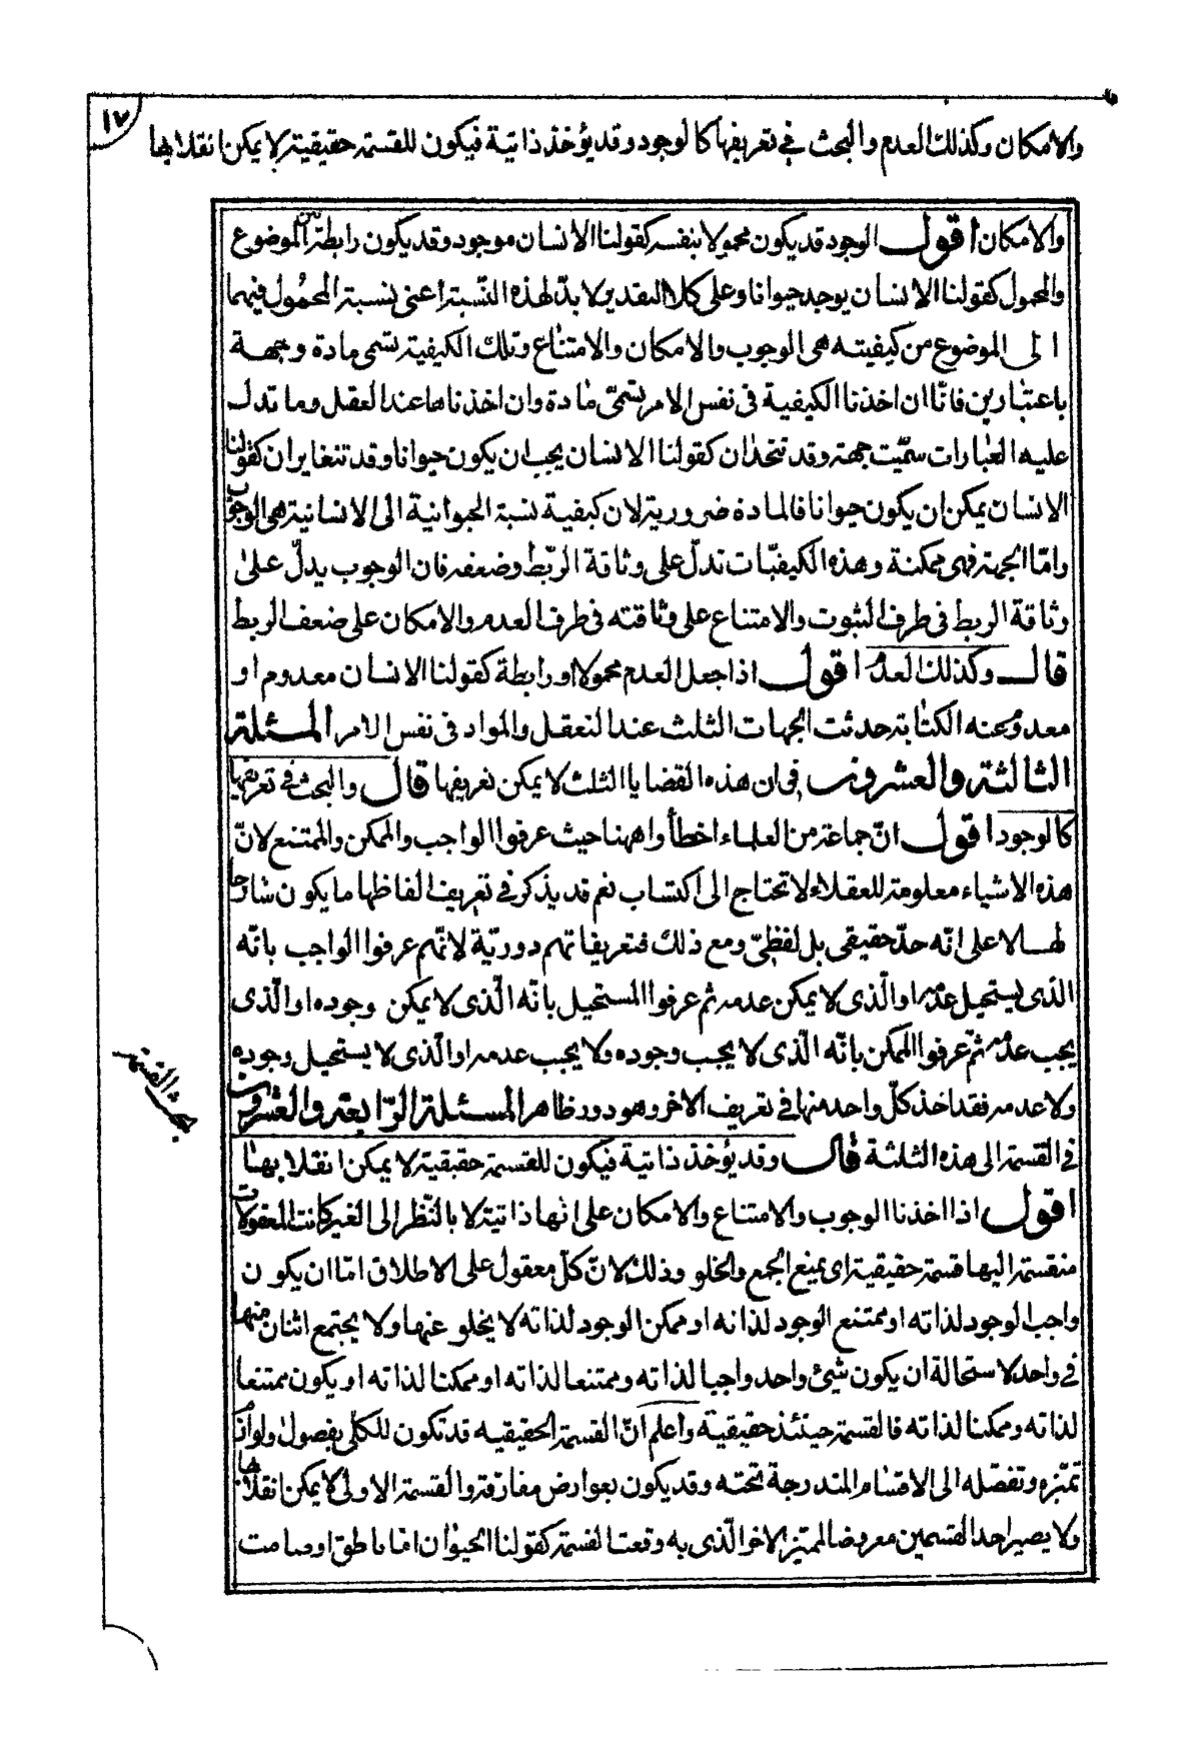 ١٧
والامكان وكذلك العدم والبحث في تعريفها كالوجود وقد يؤخذ ذاتية فيكون للقسمة حقيقية لا يمكن انقلابها
والامكان اقول الوجود قد يكون محمولا بنفسه كقولنا الانسان موجود وقد يكون رابطة بين الموضوع
والمحمول كقولنا الانسان يوجد حيوانا وعلى كلا التقديرين لا بدّ لهذه النّسبة اعنى نسبة المحمول فيهما
الى الموضوع من كيفيته هى الوجوب والامكان والامتناع وتلك الكيفية تسمى مادة وجهة
باعتبارين فانّا ان اخذنا الكيفية فى نفس الامر تسمّى مادة وان اخذناها عند العقل وما تدل
عليه العبارات سمّيت جهة وقد تتخذان كقولنا الانسان يجب ان يكون حيوانا وقد تتغايران كقولنا
الانسان يمكن ان يكون حيوانا فالمادة ضرورية لان كيفية نسبة الحيوانية الى الانسانية هى الوجوب
وامّا الجهة فهى ممكنة وهذه الكيفيّات تدلّ على وثاقة الرّبط وضعفه فان الوجوب يدلّ على
وثاقة الربط فى طرف الثبوت والامتناع على وثاقته فى طرف العدم والامكان على ضعف الربط
قال وكذلك العدم اقول اذا جعل العدم محمولا او رابطة كقولنا الانسان معدوم او
معدوم عنه الكتابة حدثت الجهات الثلث عند التعقل والمواد فى نفس الامر المسئلة
الثالثة والعشرون فى ان هذه القضايا الثلث لا يمكن تعريفها قال والبحث فى تعريفها
كالوجود اقول انّ جماعة من العلماء اخطأوا ههنا حيث عرفوا الواجب والممكن والممتنع لانّ
هذه الاشياء معلومة للعقلاء لا تحتاج الى اكتساب نعم قد يذكر فى تعريف الفاظها ما يكون شارحا
لهـا لا على انّه حدّ حقيقى بل لفظىّ ومع ذلك فتعريفاتهم دوريّة لانّهم عرفوا الواجب بانّه
الذى يستحيل عدمه او الّذى لا يمكن عدمه ثم عرفوا المستحيل بانّه الّذى لا يمكن وجوده او الّذى
يجب عدمه ثمّ عرفوا الممكن بانّه الّذى لا يجب وجوده ولا يجب عدمه او الّذى لا يستحيل وجوده
ولا عدمه فقد اخذ كلّ واحد منها فى تعريف الاخر وهو دور ظاهر المسئلة الرّابعة والعشرون
فى القسمة الى هذه الثلثة قال وقد يؤخذ ذاتية فيكون للقسمة حقيقية لا يمكن انقلابها
بحث القسمة
اقول اذا اخذنا الوجوب والامتناع والامكان على انها ذاتية لا بالنّظر الى الغير كانت المعقولات
منقسمة اليها قسمة حقيقية اى يمنع الجمع والخلو وذلك لانّ كلّ معقول على الاطلاق امّا ان يكون
واجب الوجود لذاته او ممتنع الوجود لذاته او ممكن الوجود لذاته لا يخلو عنها ولا يجتمع اثنان منها
فى واحد لاستحالة ان يكون شيئ واحد واجبا لذاته وممتنعا لذاته او ممكنا لذاته او يكون ممتنعا
لذاته وممكنا لذاته فالقسمة حينئذ حقيقيّة واعلم انّ القسمة الحقيقيه قد تكون للكلّى بفصول ولوازم
تميّزه وتفصّله الى الاقسام المندرجة تحته وقد يكون بعوارض مفارقة والقسمة الاولى لا يمكن انقلابها
ولا يصير احد القسمين معروضا لمميّز الاخر الّذى به وقعت القسمة كقولنا الحيوان امّا ناطق او صامت